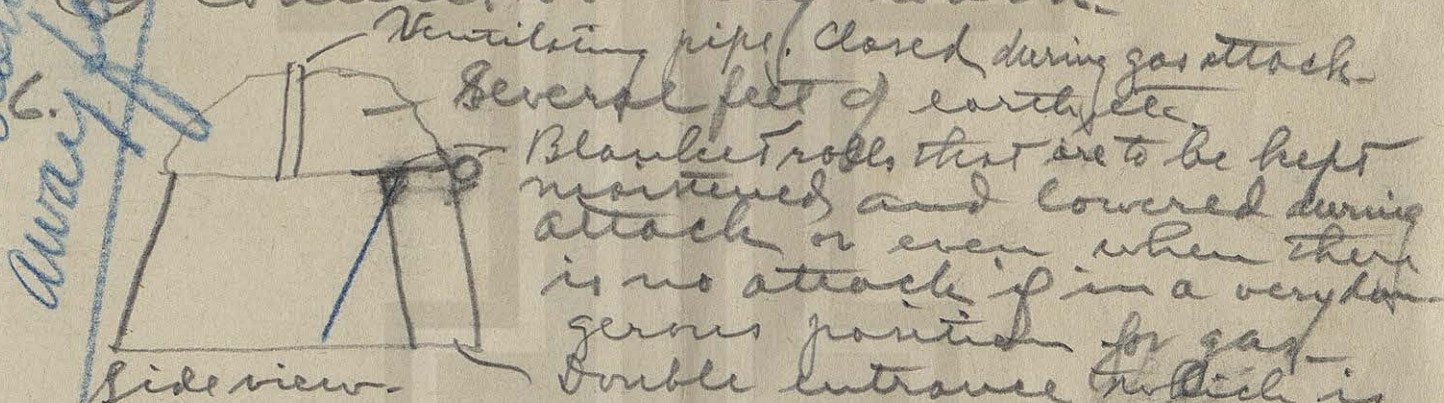 Ventilating pipe. Closed during gas attack
6.
Several feet of earth, etc.
Blanket rolls that are to be kept
moistened and lowered during
attack or even when there
is no attack if in a very dan-
gerous position for gas.
Side view-
Double entrance which is
away